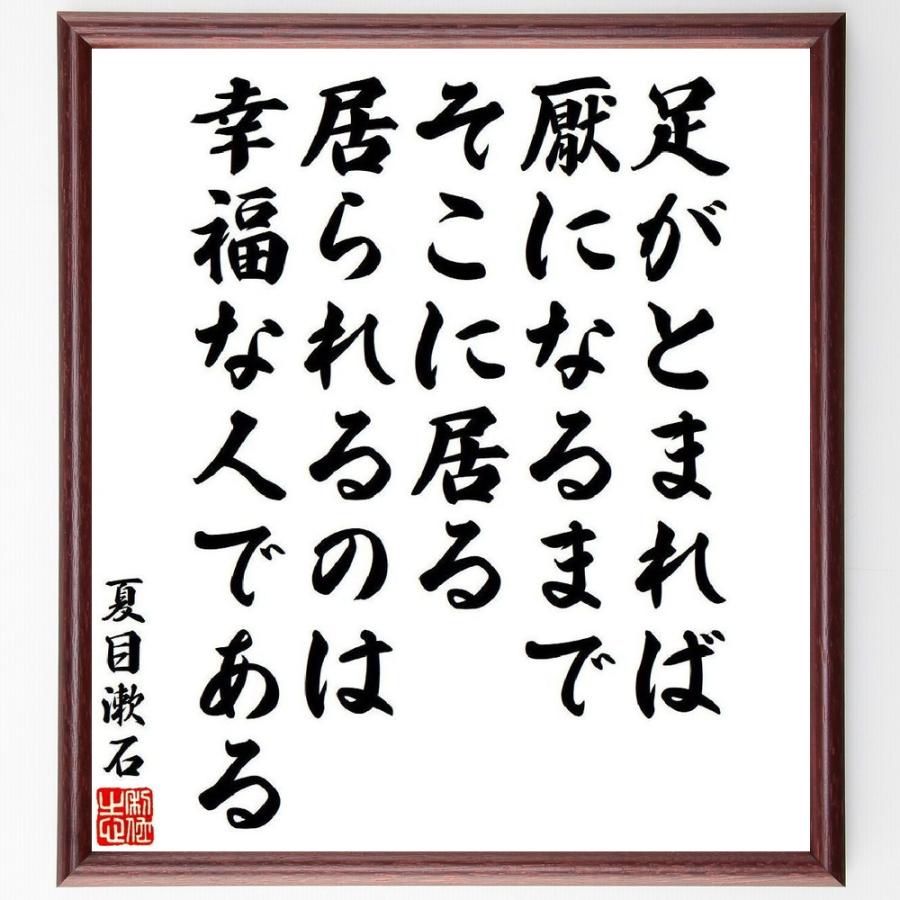 足がとまれば
厭になるまで
そこに居る
居られるのは
幸福な人である
夏目漱石